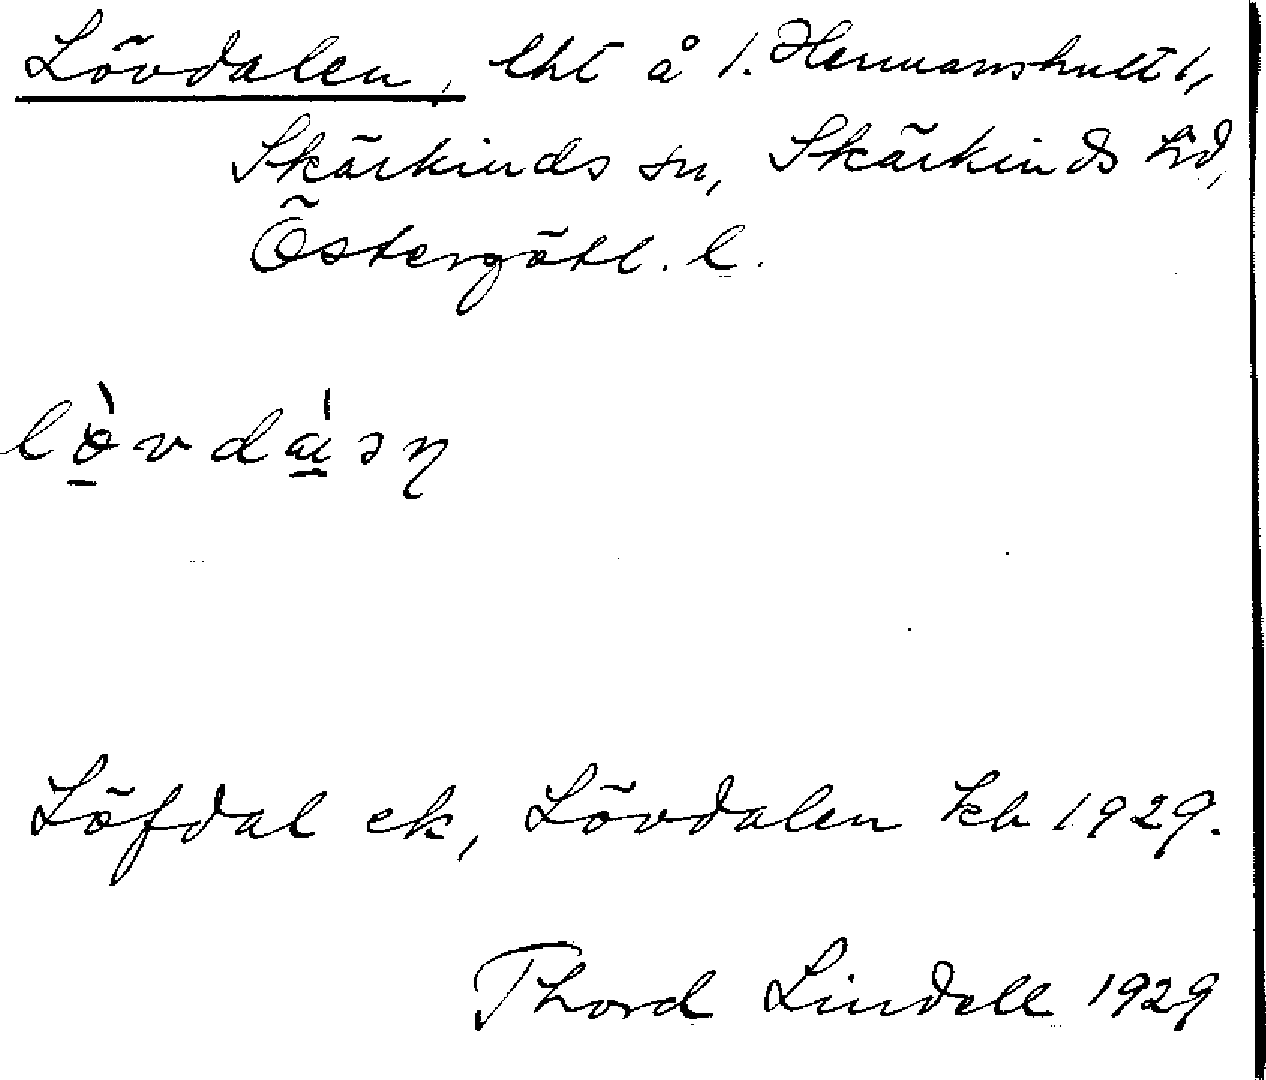 Lövdalen, lht å 1. Hermanshult 1,
Skärkinds sn, Skärkinds hd,
Östergötl. l.
Löfdal ek, Lövdalen kb 1929.
Thord Lindell 1929